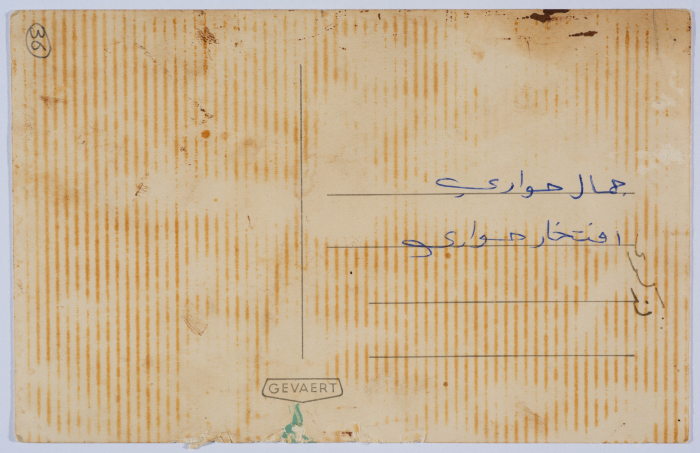 36
جمال حواري
افتخار حواري
GEVAERT